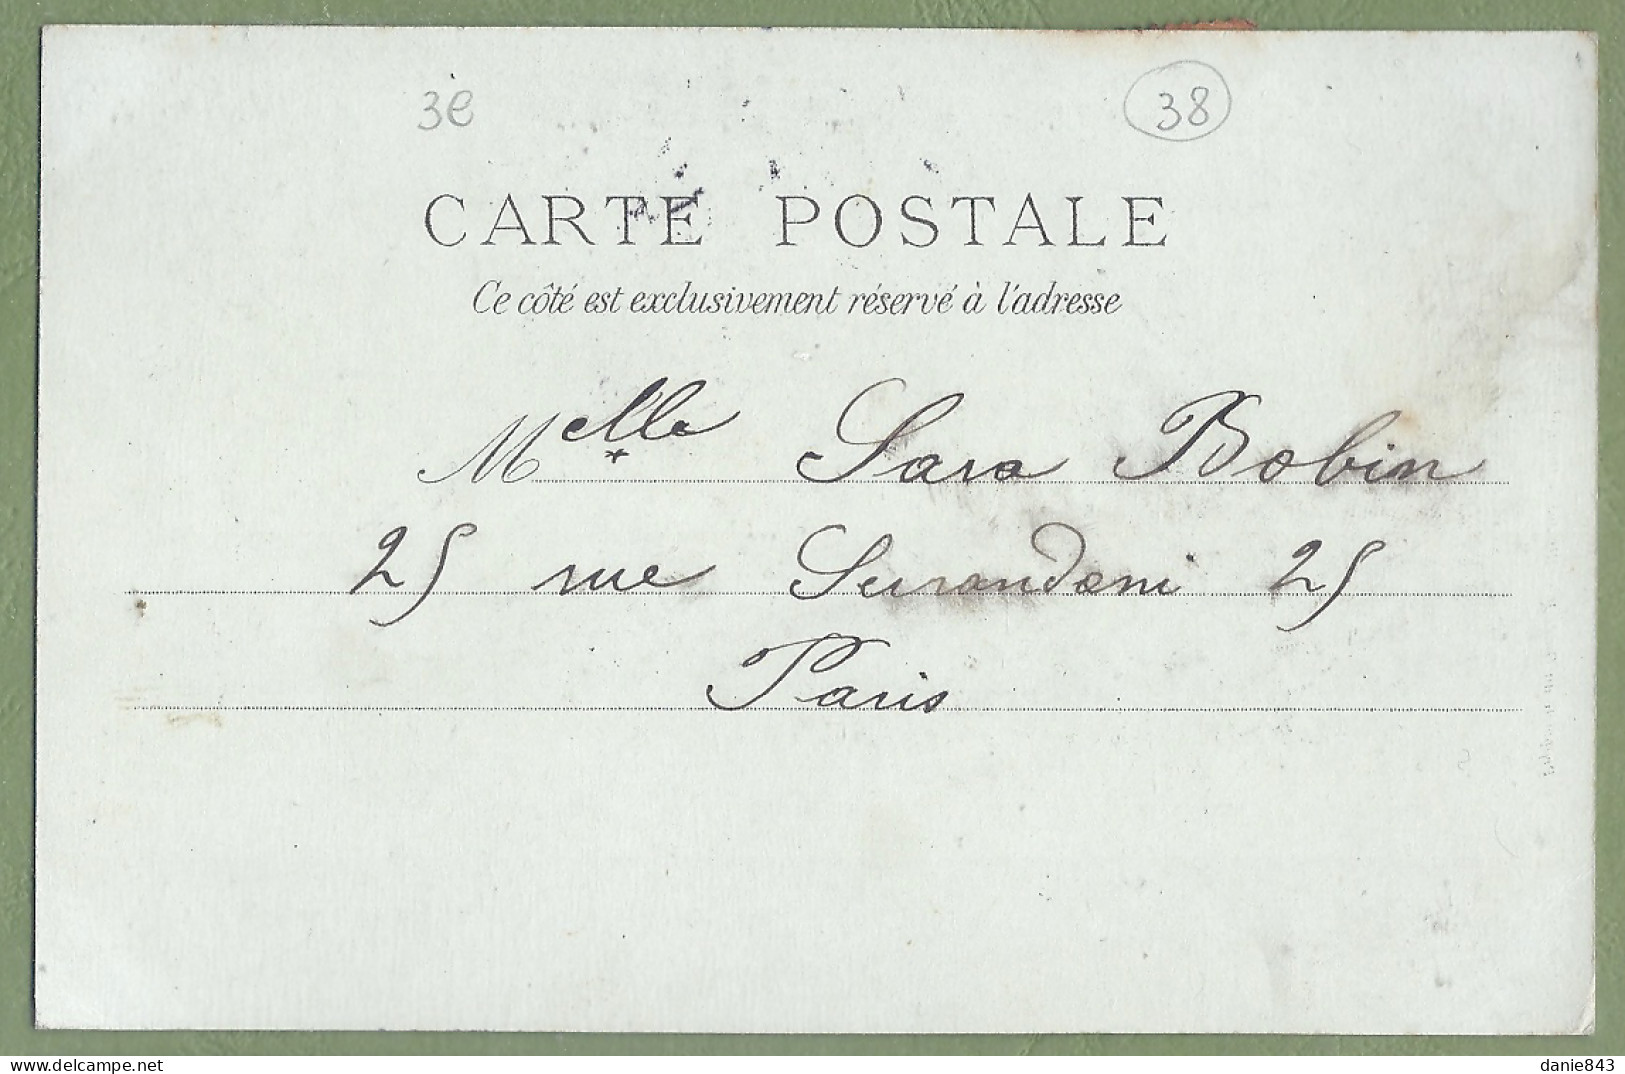 3e 38
CARTE POSTALE
Ce côté est exclusivement réservé à l'adresse
Melle Sara Bobin
25 rue 25
Paris
delcampe.net danie843